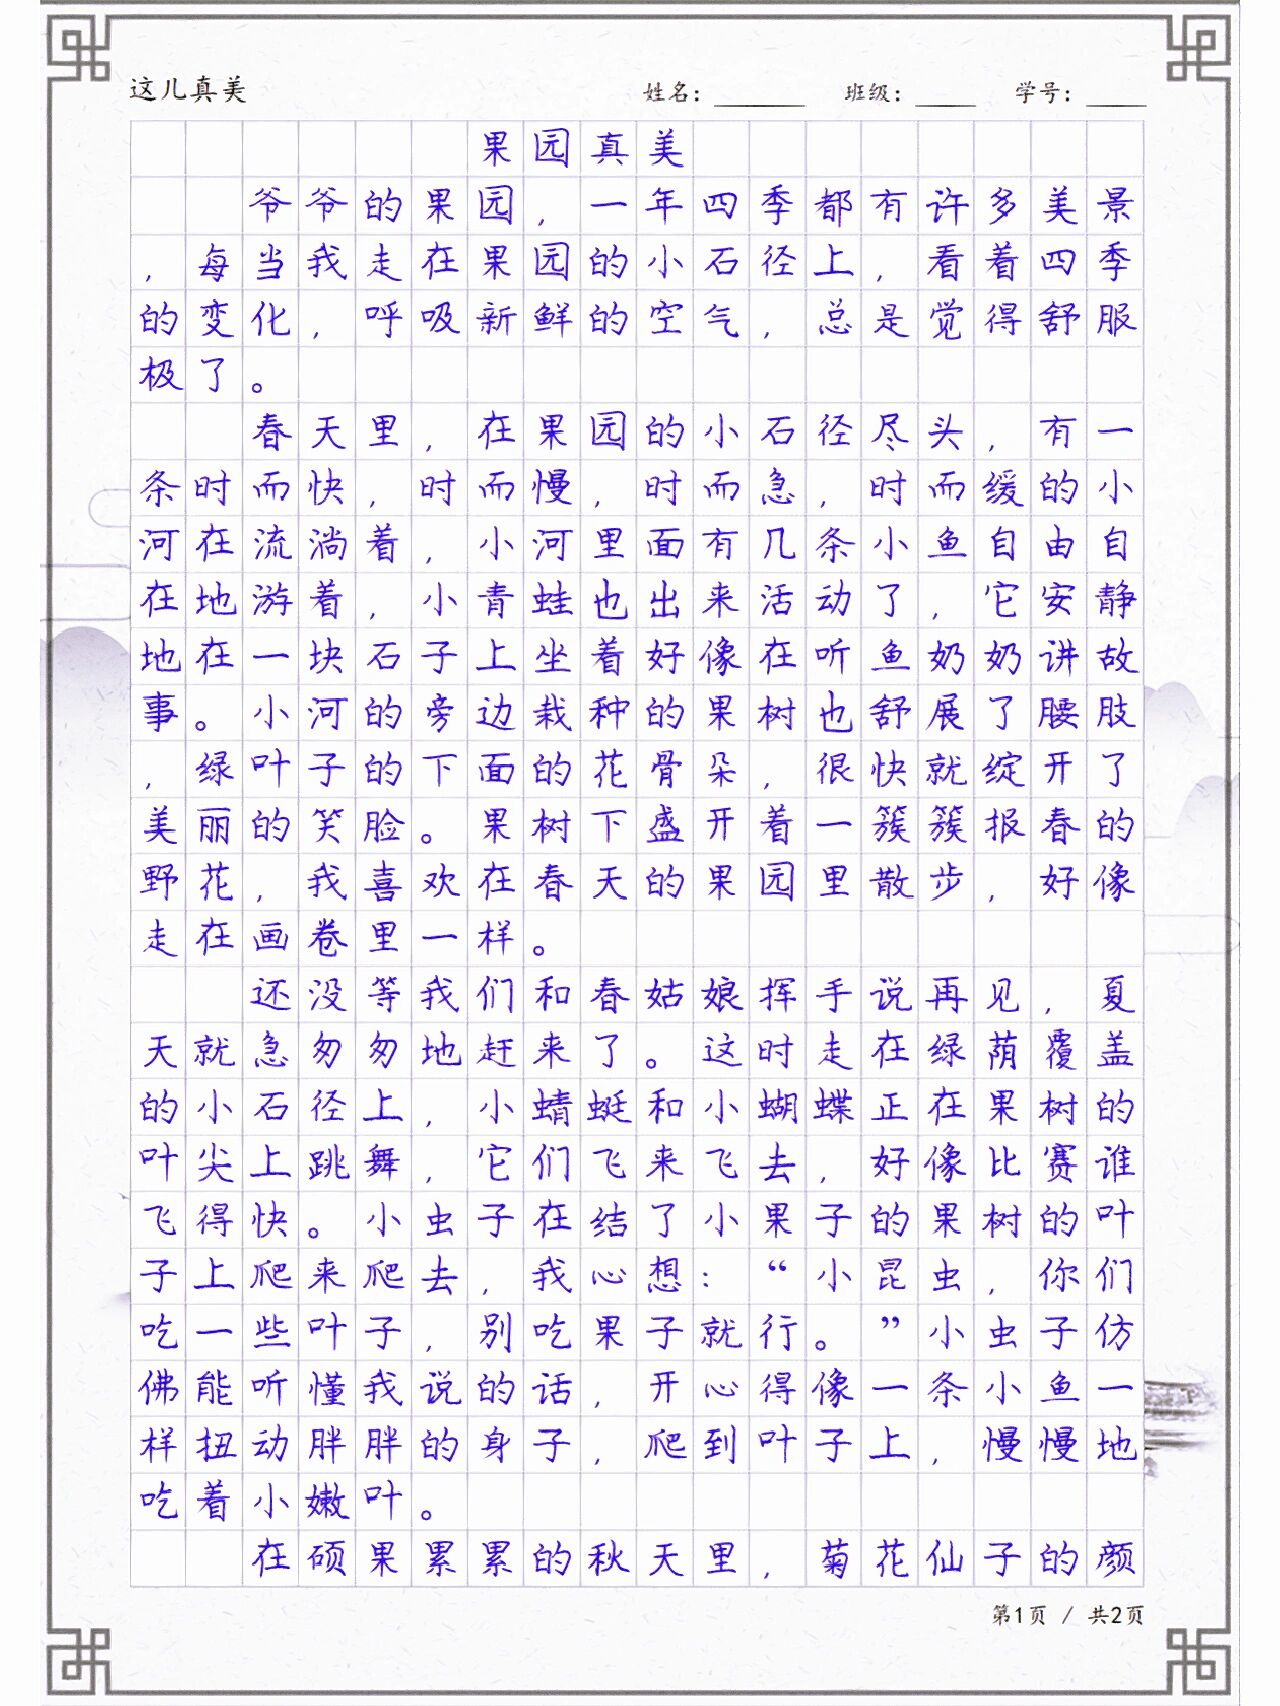 这儿真美 姓名： 班级： 学号：
果园真美
爷爷的果园，一年四季都有许多美景
，每当我走在果园的小石径上，看着四季
的变化，呼吸新鲜的空气，总是觉得舒服
极了。
春天里，在果园的小石径尽头，有一
条时而快，时而慢，时而急，时而缓的小
河在流淌着，小河里面有几条小鱼自由自
在地游着，小青蛙也出来活动了，它安静
地在一块石子上坐着好像在听鱼奶奶讲故
事。小河的旁边栽种的果树也舒展了腰肢
，绿叶子的下面的花骨朵，很快就绽开了
美丽的笑脸。果树下盛开着一簇簇报春的
野花，我喜欢在春天的果园里散步，好像
走在画卷里一样。
还没等我们和春姑娘挥手说再见，夏
天就急匆匆地赶来了。这时走在绿荫覆盖
的小石径上，小蜻蜓和小蝴蝶正在果树的
叶尖上跳舞，它们飞来飞去，好像比赛谁
飞得快。小虫子在结了小果子的果树的叶
子上爬来爬去，我心想：“小昆虫，你们
吃一些叶子，别吃果子就行。”小虫子仿
佛能听懂我说的话，开心得像一条小鱼一
样扭动胖胖的身子，爬到叶子上，慢慢地
吃着小嫩叶。
在硕果累累的秋天里，菊花仙子的颜
第1页 / 共2页